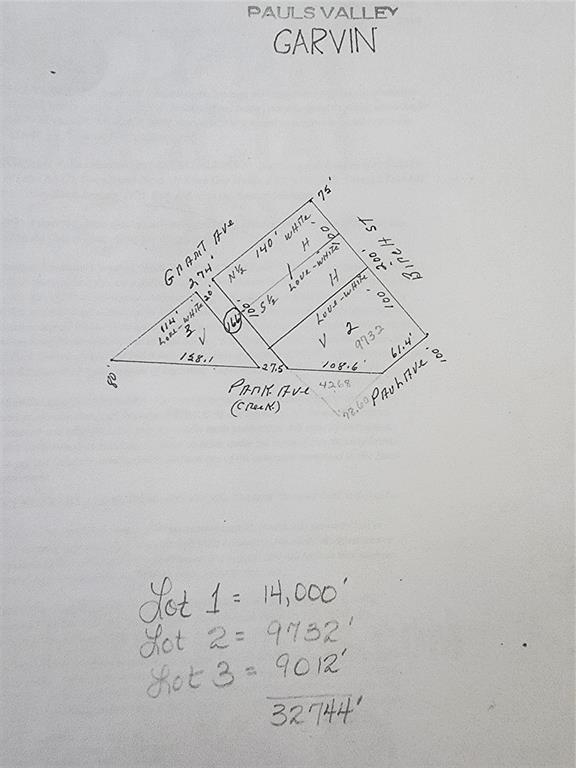 PAULS VALLEY
GARVIN
75'
GRANT AVE
274'
140' WHITE
N½
H
100
BIRCH ST
200'
20'
114'
LOVE-WHITE
3
V
166
100
S½
1
LOVE-WHITE
H
LOVE-WHITE
100
V
2
9732
158.1
80'
27.5
108.6'
61.4'
100'
PARK AVE
(CREEK)
4268
78.60
PAUL AVE
Lot 1 = 14,000'
Lot 2 = 9732'
Lot 3 = 9012'
32744'